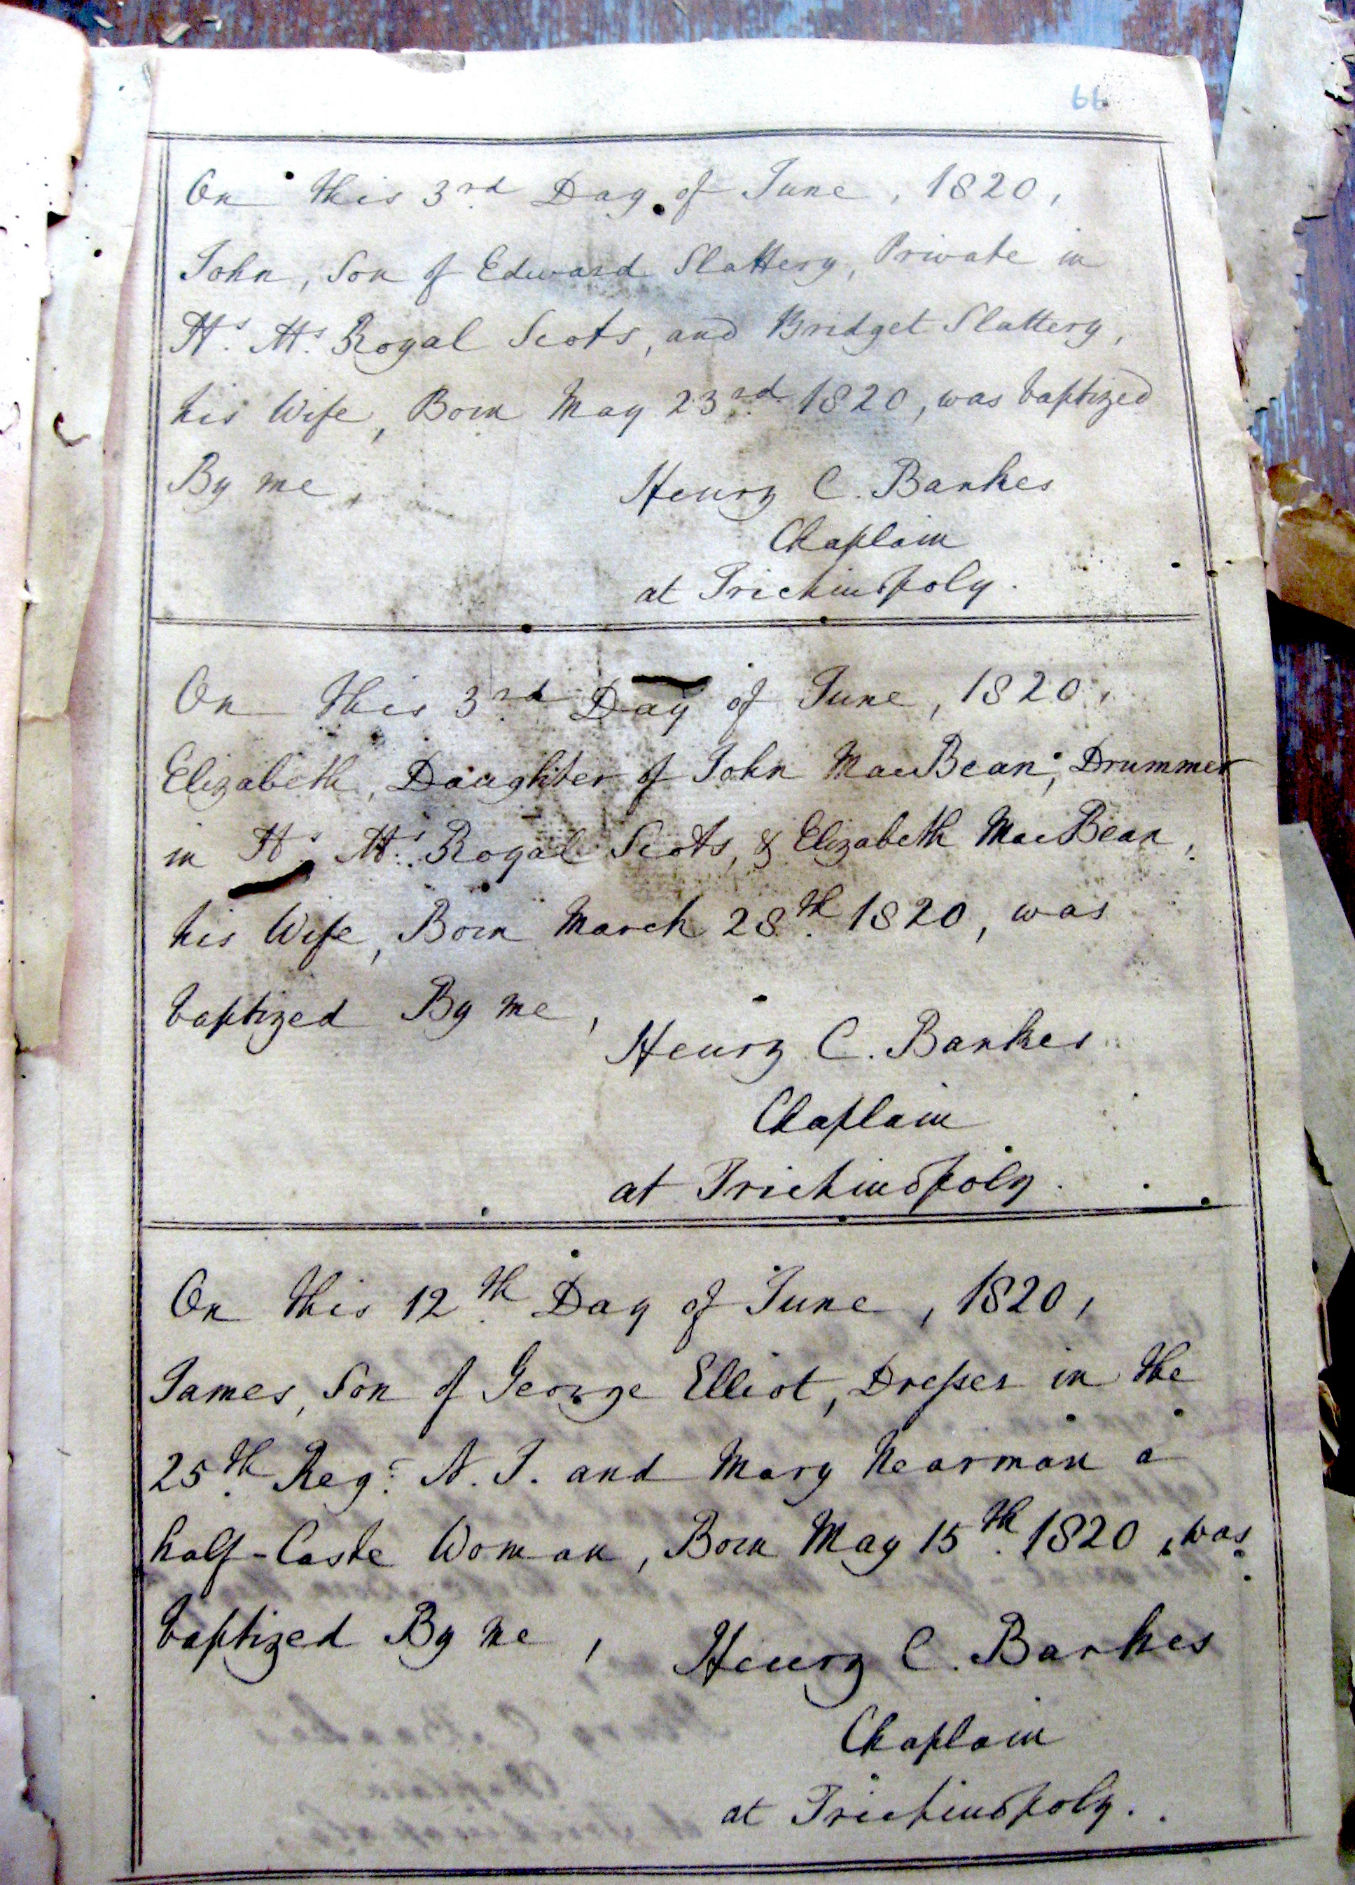 66
On this 3rd Day of June, 1820,
John, Son of Edward Slattery, Private in
H.s M.s Royal Scots, and Bridget Slattery,
his Wife, Born May 23rd 1820, was baptized
By me,
Henry C. Bankes
Chaplain
at Trichinopoly.
On this 3rd Day of June, 1820,
Elizabeth, Daughter of John MacBean, Drummer
in H.s M.s Royal Scots, & Elizabeth MacBean,
his Wife, Born March 28th. 1820, was
baptized By me,
Henry C. Bankes
Chaplain
at Trichinopoly.
On this 12th. Day of June, 1820,
James, Son of George Elliot, Dresser in the
25th. Regt. N. I. and Mary Nearman a
half-Caste Woman, Born May 15th. 1820, was
baptized By me,
Henry C. Bankes
Chaplain
at Trichinopoly.